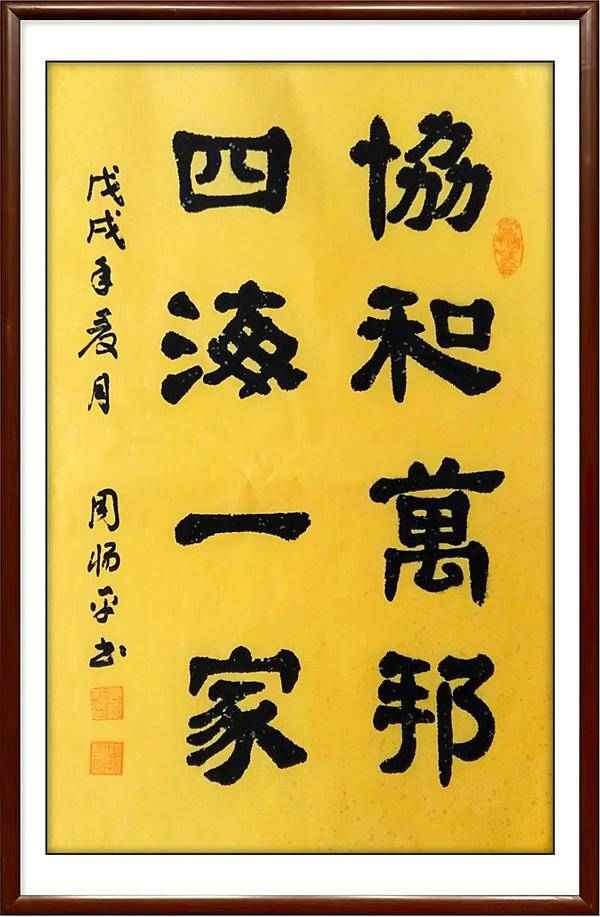 協和萬邦
四海一家
戊戌年夏月 周炀平书